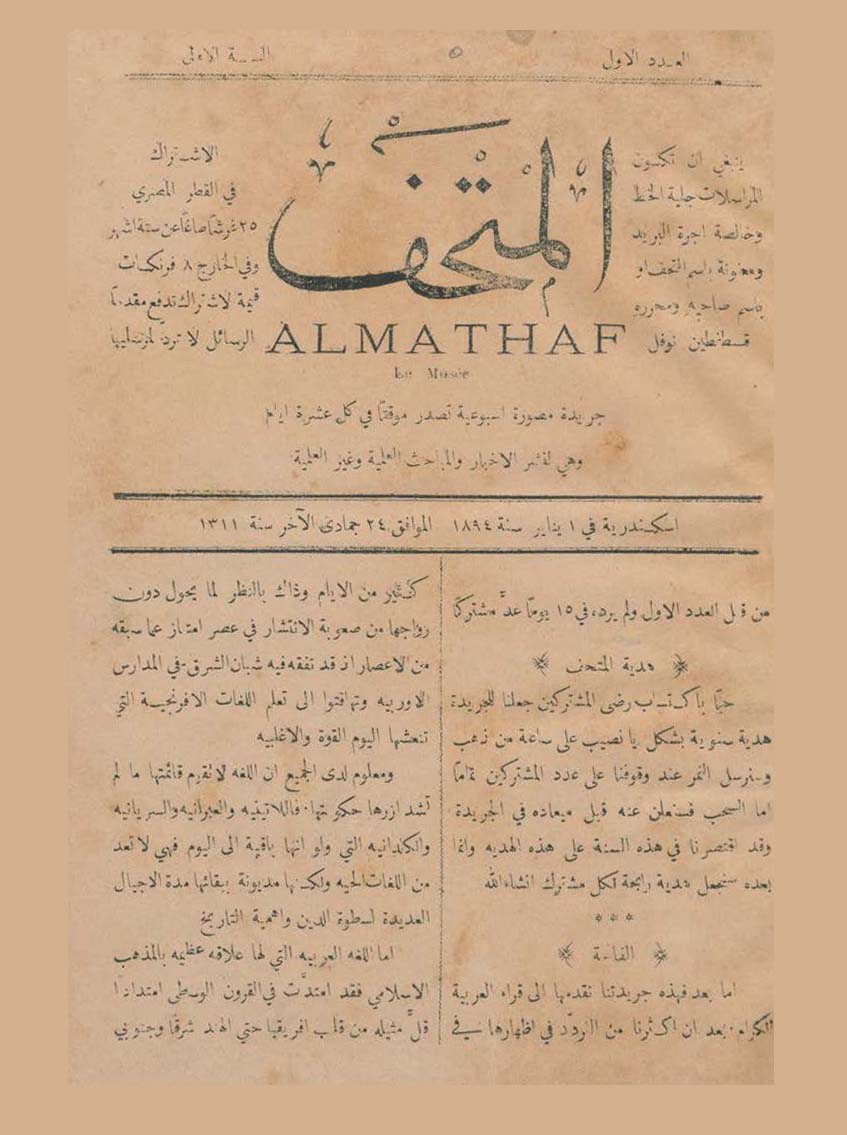 العدد الاول
السنة الاولى
ينبغي ان تكون
المراسلات جلية الخط
وخالصة اجرة البريد
ومعنونة باسم المتحف او
باسم صاحبه ومحرره
قسطنطين نوفل
المتحف
ALMATHAF
Le Musée
الاشتراك
في القطر المصري
٢٥ غرشًا صاغًا عن ستة اشهر
وفي الخارج ٨ فرنكات
قيمة الاشتراك تدفع مقدمًا
الرسائل لا تردّ لمرسليها
جريدة مصورة اسبوعية تصدر موقتًا في كل عشرة ايام
وهي لنشر الاخبار والمباحث العلمية وغير العلمية
اسكندرية في ١ يناير سنة ١٨٩٤ الموافق ٢٤ جمادى الآخر سنة ١٣١١
من قبل العدد الاول ولم يرده في ١٥ يومًا عدَّ مشتركًا
هدية المتحف
حبًا باكتساب رضى المشتركين جعلنا للجريدة
هدية سنوية بشكل يا نصيب على ساعة من ذهب
وسنرسل النمر عند وقوفنا على عدد المشتركين تمامًا
اما السحب فسنعلن عنه قبل ميعاده في الجريدة
وقد اقتصرنا في هذه السنة على هذه الهديه وانما
بعده سنجعل هدية رابحة لكل مشترك انشاء الله
* * *
الفاتحة
اما بعد فهذه جريدتنا نقدمها الى قراء العربية
الكرام. بعد ان اكثرنا من التردّد في اظهارها في
كثير من الايام وذاك بالنظر لما يحول دون
رواجها من صعوبة الانتشار في عصر امتاز عما سبقه
من الاعصار اذ قد تفقه فيه شبان الشرق في المدارس
الاوربيه وتهافتوا الى تعلم اللغات الافرنجية التي
تنعشها اليوم القوة والاغلبيه
ومعلوم لدى الجميع ان اللغه لا تقوم قائمتها ما لم
تشد ازرها حكومتها. فاللاتينيه والعبرانيه والسريانيه
والكلدانيه التي ولو انها باقية الى اليوم فهي لا تعد
من اللغات الحيه ولكنها مديونة ببقائها مدة الاجيال
العديدة لسطوة الدين واهمية التاريخ
اما اللغه العربيه التي لها علاقه عظيمه بالمذهب
الاسلامي فقد امتدَّت في القرون الوسطى امتدادًا
قلَّ مثيله من قلب افريقيا حتى الهند شرقًا وجنوبي